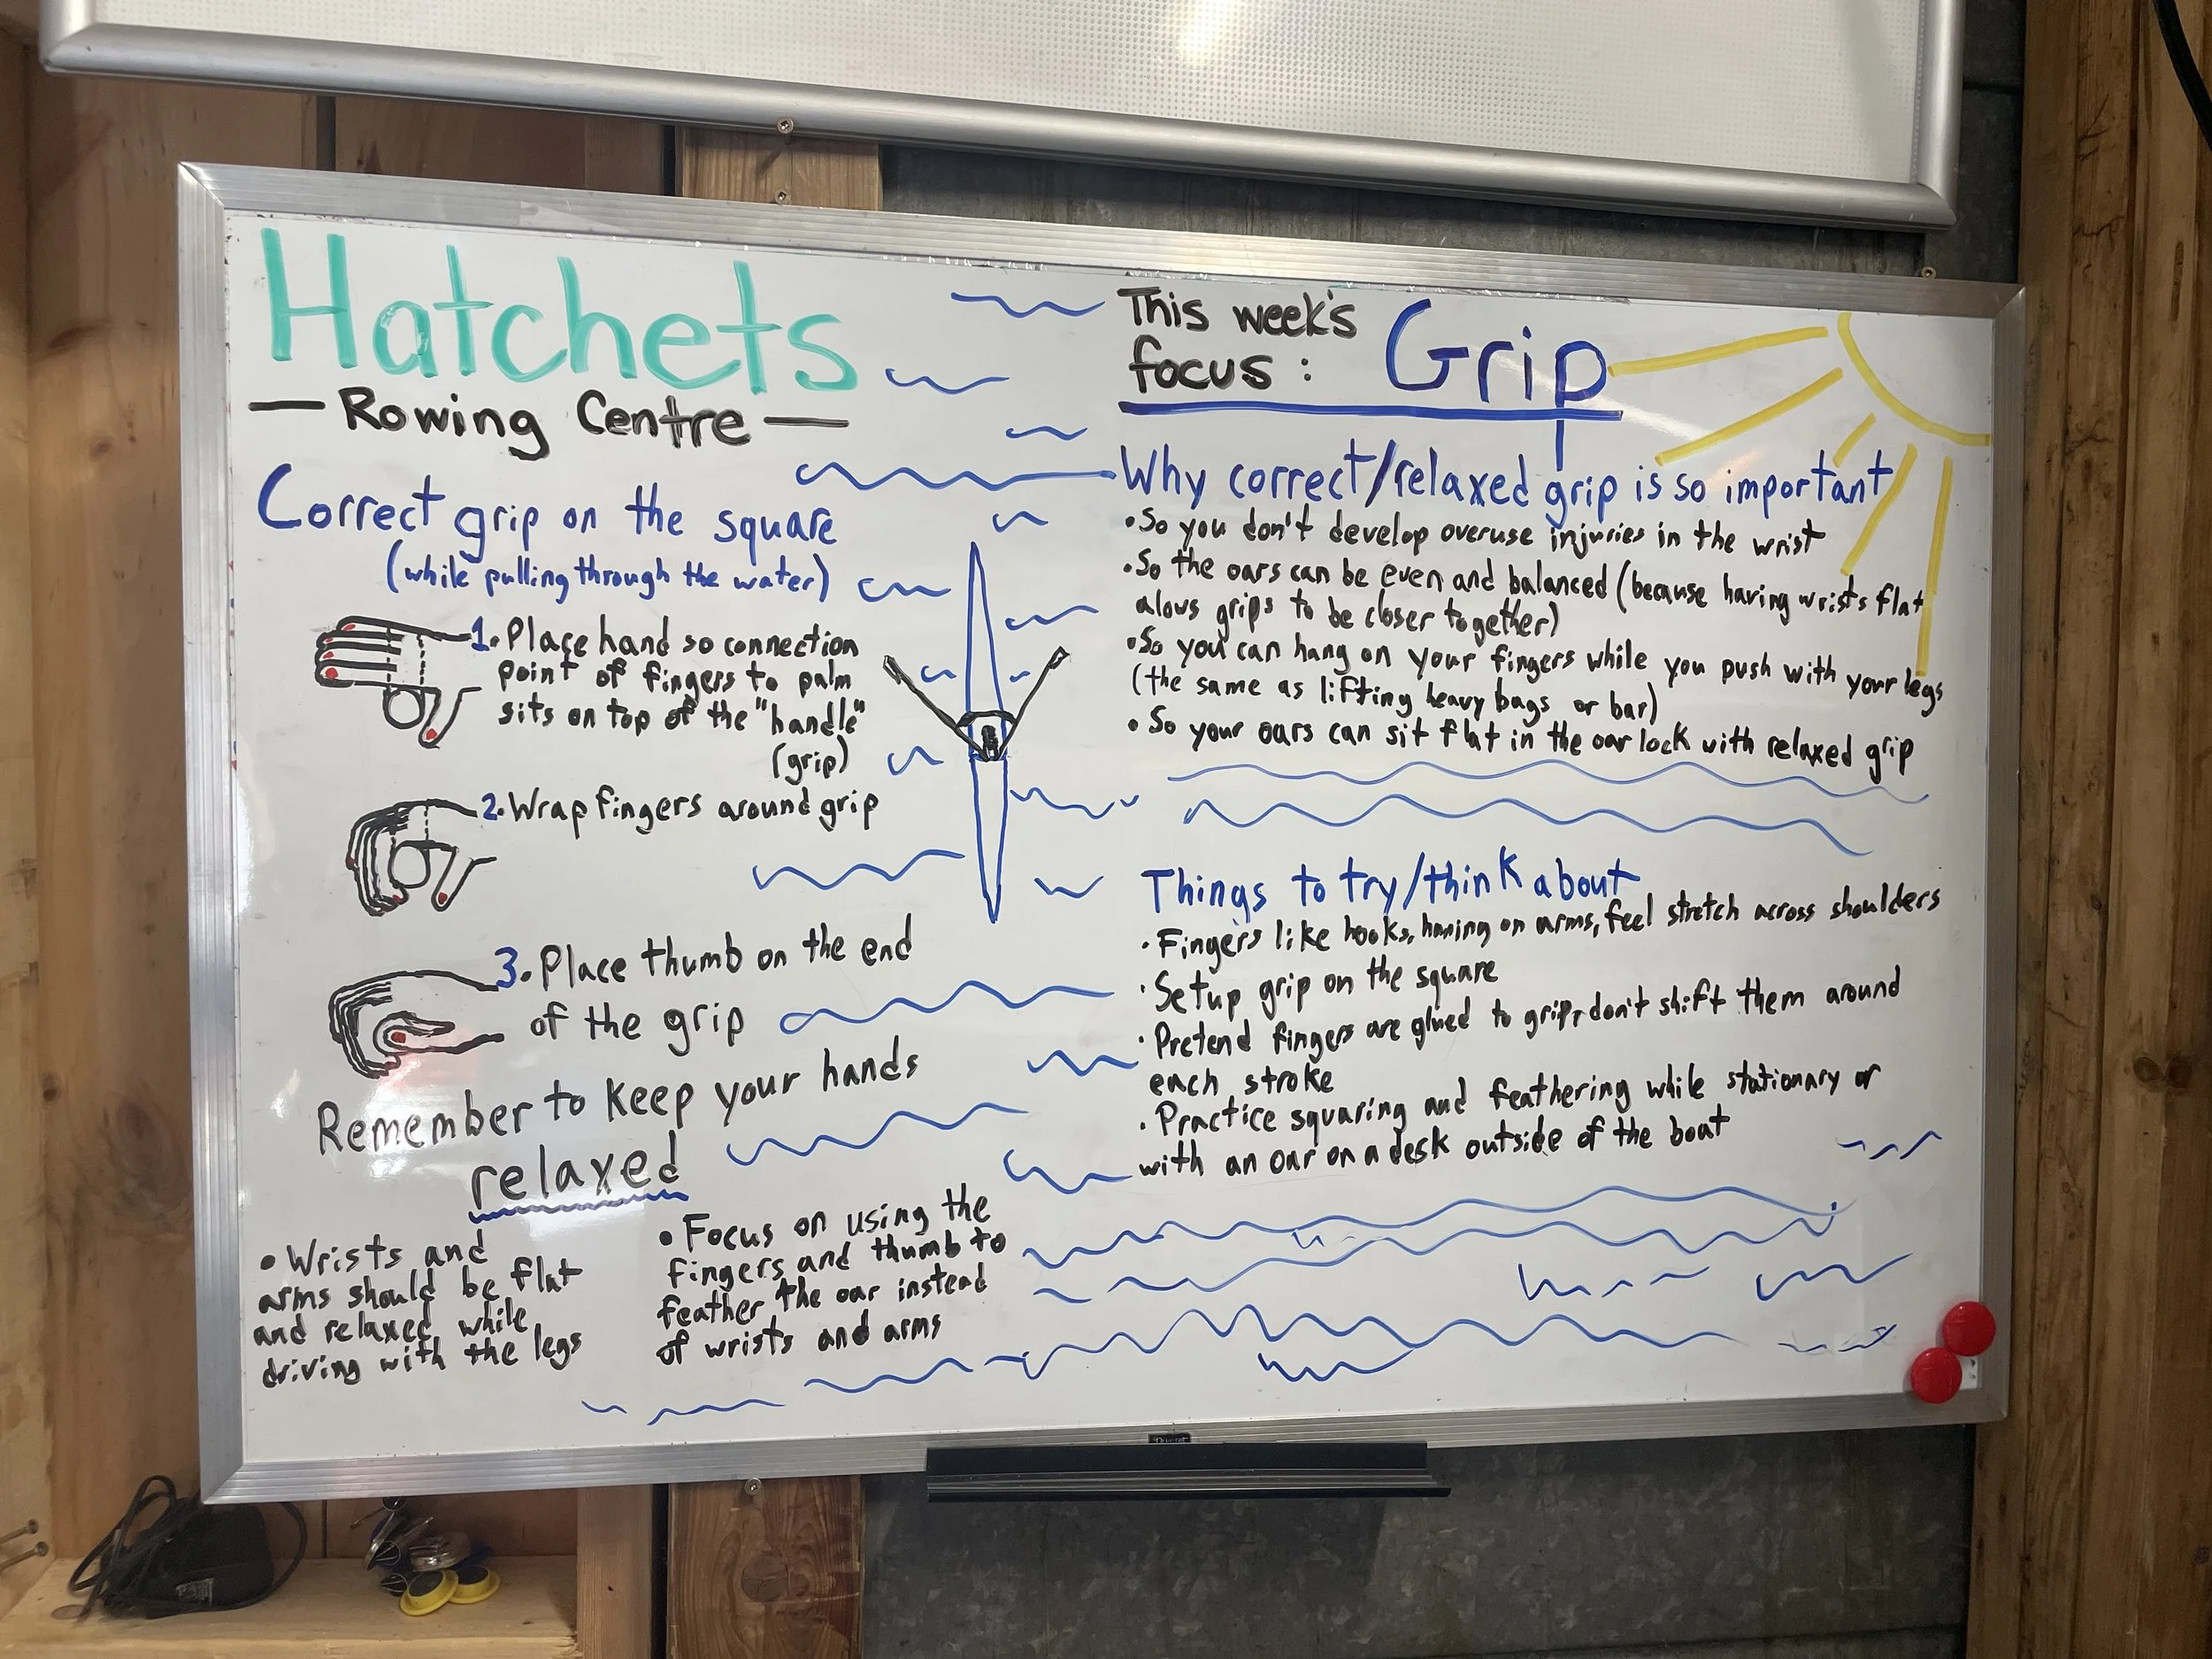 Hatchets
— Rowing Centre —
Correct grip on the square
(while pulling through the water)
1. Place hand so connection
point of fingers to palm
sits on top of the "handle"
(grip)
2. Wrap fingers around grip
3. Place thumb on the end
of the grip
Remember to keep your hands
relaxed
• Wrists and
arms should be flat
and relaxed while
driving with the legs
• Focus on using the
fingers and thumb to
feather the oar instead
of wrists and arms
This week's
focus: Grip
Why correct/relaxed grip is so important
• So you don't develop overuse injuries in the wrist
• So the oars can be even and balanced (because having wrists flat
alows grips to be closer together)
• So you can hang on your fingers while you push with your legs
(the same as lifting heavy bags or bar)
• So your oars can sit flat in the oar lock with relaxed grip
Things to try/think about
• Fingers like hooks, on arms, feel stretch across shoulders
• Setup grip on the square
• Pretend fingers are glued to grip, don't shift them around
each stroke
• Practice squaring and feathering while stationary or
with an oar on a desk outside of the boat